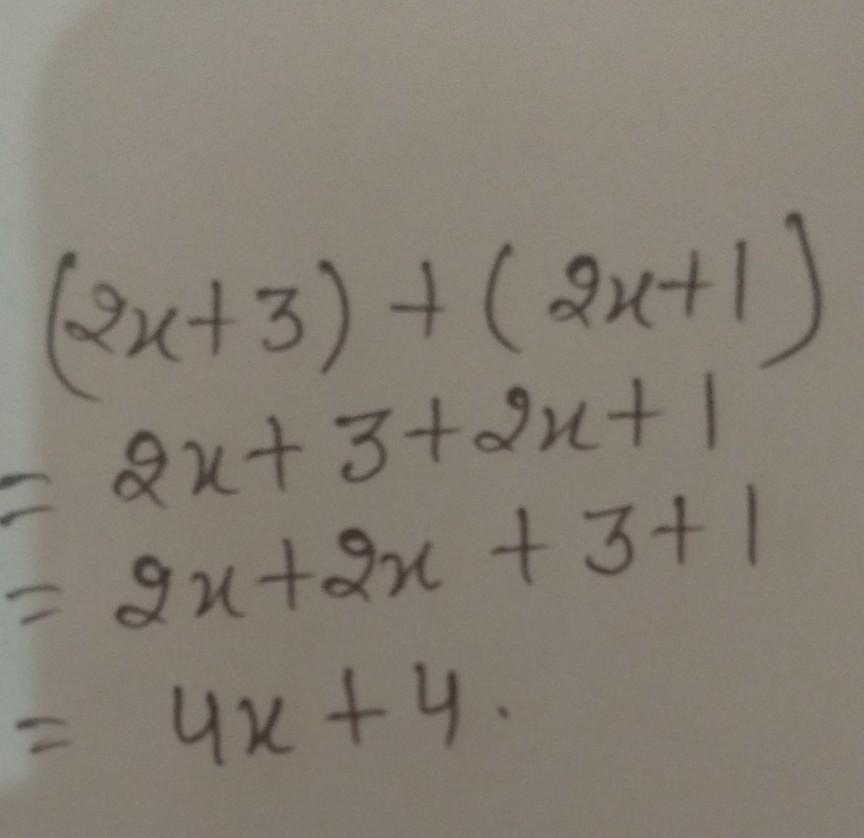 (2x+3)+(2x+1)
= 2x+3+2x+1
= 2x+2x+3+1
= 4x+4.